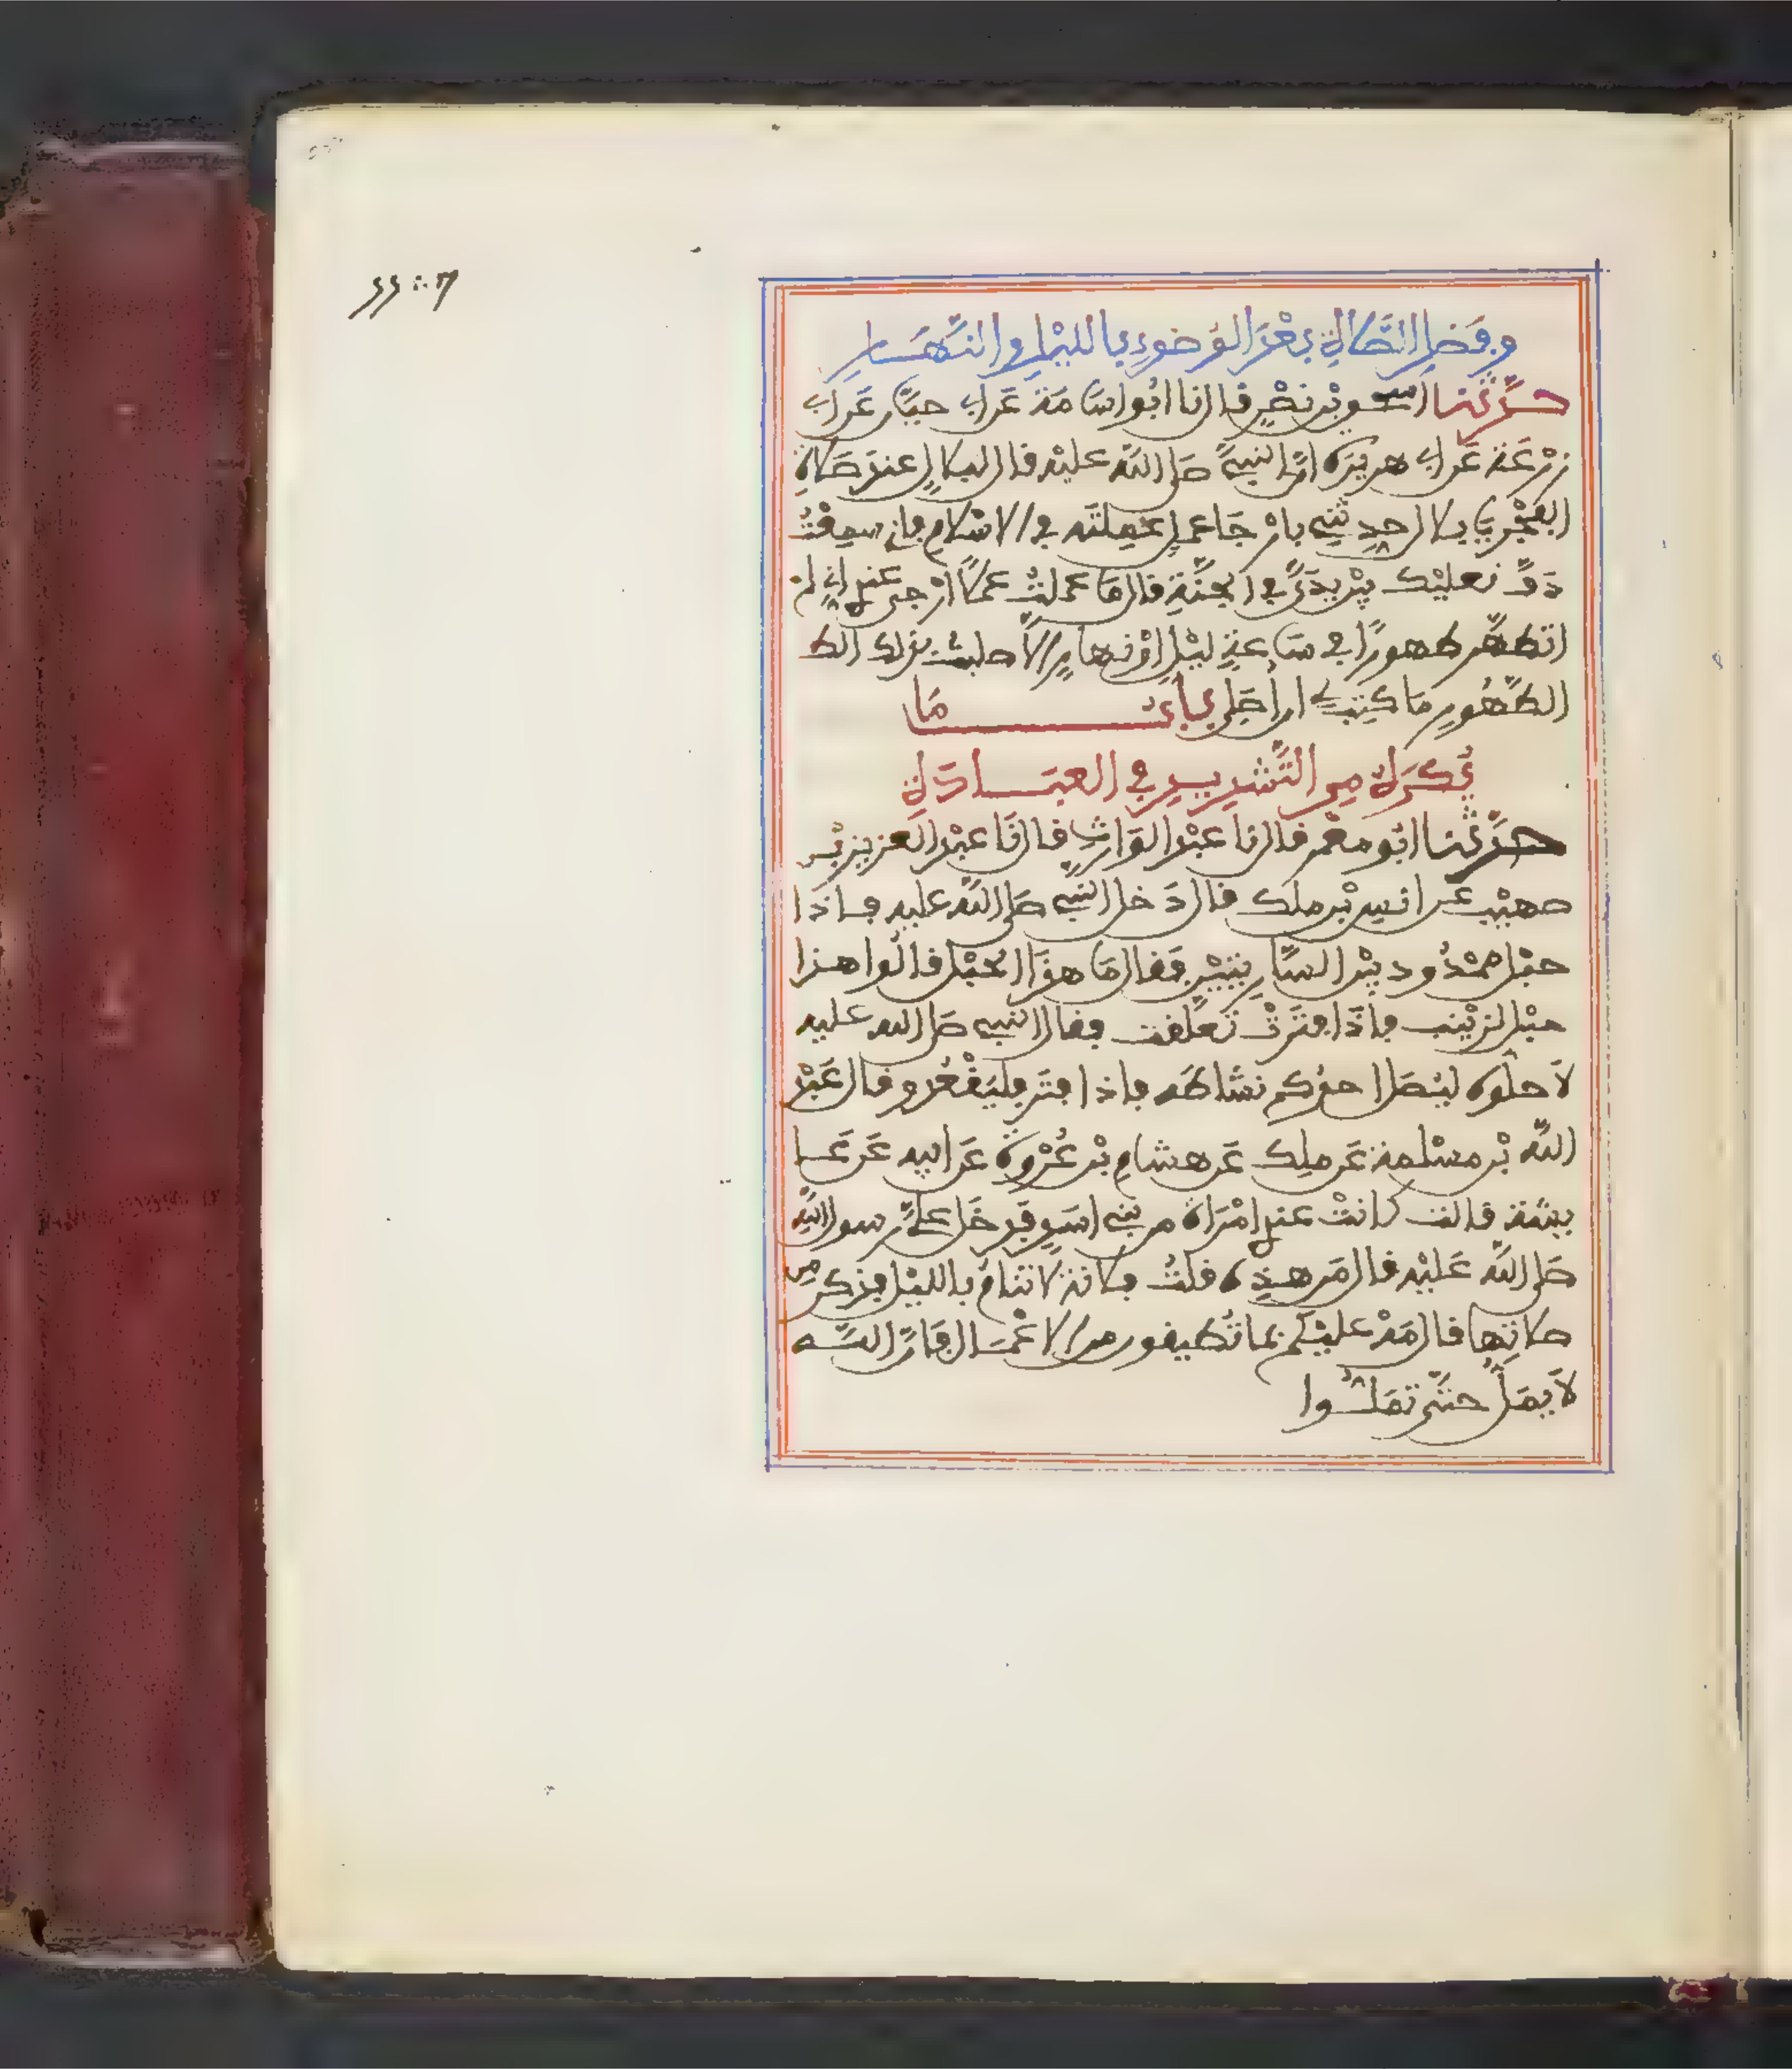 وفضل الصلاة بعد الوضوء بالليل والنهار
حدثنا اسحق بن نصر قال نا ابو اسامة عن ابي حيان عن ابي
زرعة عن ابي هريرة ان النبي صلى الله عليه قال لبلال عند صلاة
الفجر يا بلال حدثني بارجا عمل عملته في الاسلام فاني سمعت
دف نعليك بين يدي في الجنة قال ما عملت عملا ارجى عندي اني لم
اتطهر طهورا في ساعة ليل او نهار الا صليت بذلك الط
الطهور ما كتب لي ان اصلي باب ما
يكره من التشديد في العبادة
حدثنا ابو معمر قال نا عبد الوارث قال نا عبد العزيز بن
صهيب عن انس بن ملك قال دخل النبي صلى الله عليه فاذا
حبل ممدود بين الساريتين فقال ما هذا الحبل قالوا هذا
حبل لزينب فاذا فترت تعلقت فقال النبي صلى الله عليه
لا حلوه ليصل احدكم نشاطه فاذا فتر فليقعد وقال عبد
الله بن مسلمة عن ملك عن هشام بن عروة عن ابيه عن عا
يشة قالت كانت عندي امراة من بني اسد فدخل علي رسول الله
صلى الله عليه فقال من هذه قلت فلانة لا تنام بالليل فذكر من
صلاتها فقال مه عليكم بما تطيقون من الاعمال فان الله
لا يمل حتى تملوا